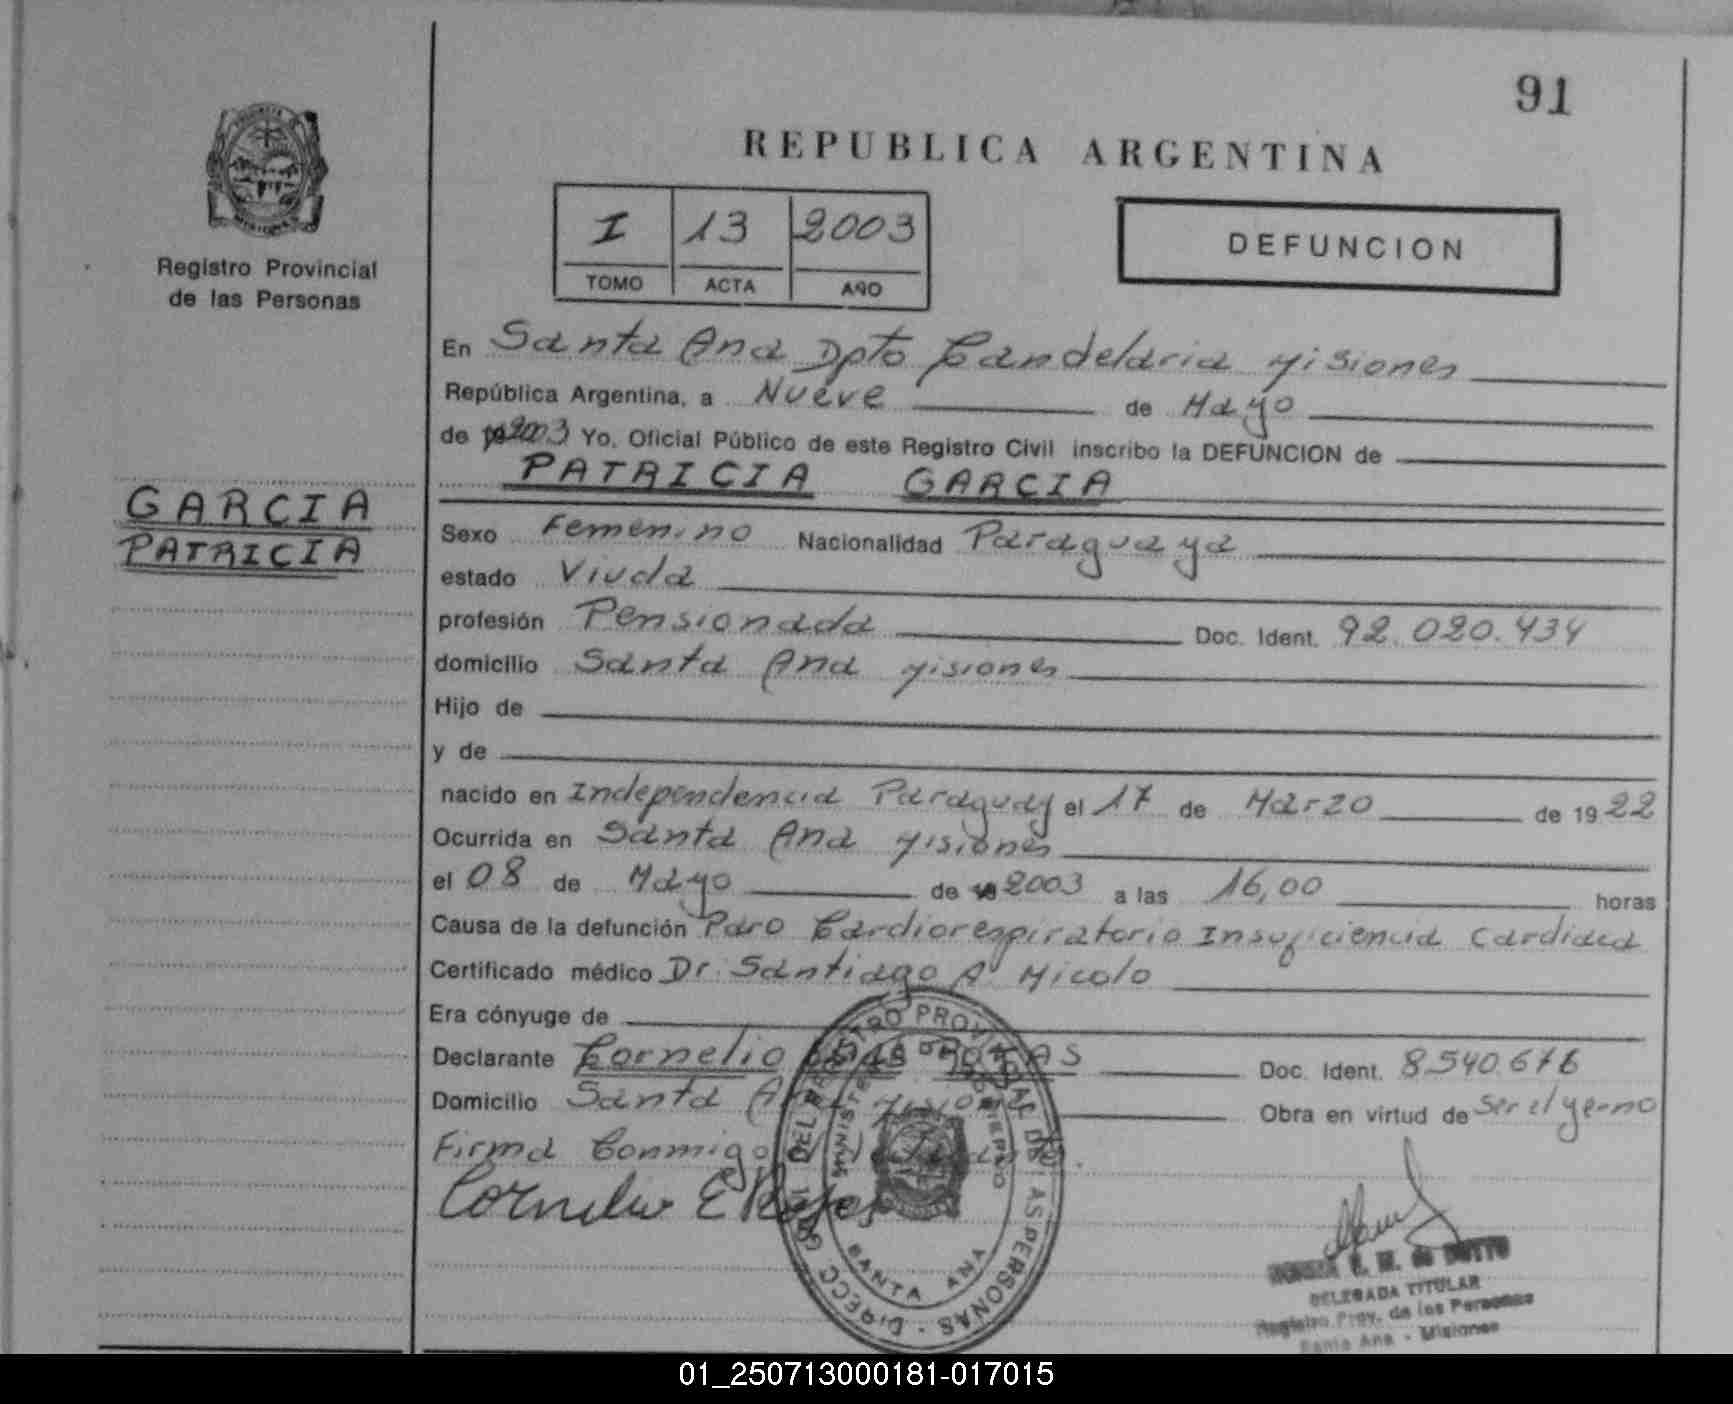 91
REPUBLICA ARGENTINA
I 13 2003
TOMO ACTA AÑO
DEFUNCION
Registro Provincial
de las Personas
En Santa Ana Dpto Candelaria Misiones
República Argentina, a Nueve de Mayo
de 2003 Yo, Oficial Público de este Registro Civil inscribo la DEFUNCION de
PATRICIA GARCIA
GARCIA
PATRICIA
Sexo Femenino Nacionalidad Paraguaya
estado Viuda
profesión Pensionada Doc. Ident. 92.020.434
domicilio Santa Ana Misiones
Hijo de
y de
nacido en Independencia Paraguay el 17 de Marzo de 1922
Ocurrida en Santa Ana Misiones
el 08 de Mayo de 2003 a las 16,00 horas
Causa de la defunción Paro Cardiorespiratorio Insuficiencia Cardiaca
Certificado médico Dr. Santiago A. Micolo
Era cónyuge de
Declarante Cornelio ROJAS Doc. Ident. 8.540.676
Domicilio Santa Ana Misiones Obra en virtud de Ser el yerno
Firma Conmigo
Cornelio E Rojas
DIRECC. GRAL. DEL REGISTRO PROVINCIAL DE LAS PERSONAS
MINISTERIO DE GOBIERNO
SANTA ANA
DELEGADA TITULAR
Registro Prov. de las Personas
Santa Ana - Misiones
01_250713000181-017015